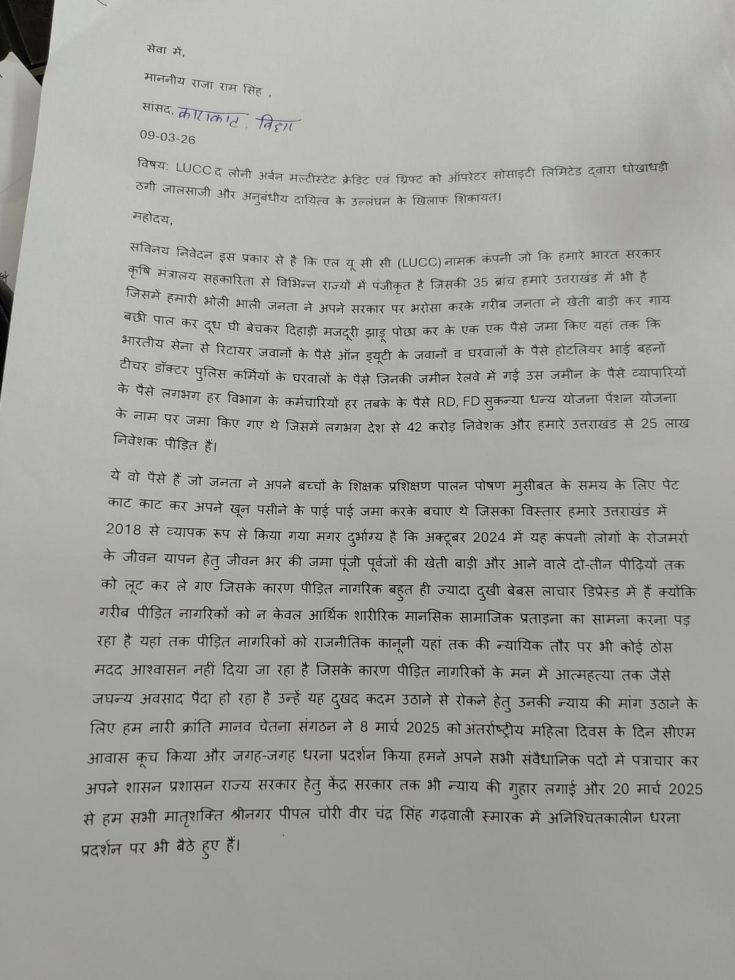 सेवा में,
माननीय राजा राम सिंह ,
सांसद, काराकाट, बिहार
09-03-26
विषय: LUCC द लोनी अर्बन मल्टीस्टेट क्रेडिट एवं थ्रिफ्ट को ऑपरेटर सोसाइटी लिमिटेड द्वारा धोखाधड़ी
ठगी जालसाजी और अनुबंधीय दायित्व के उल्लंघन के खिलाफ शिकायत।
महोदय,
सविनय निवेदन इस प्रकार से है कि एल यू सी सी (LUCC) नामक कंपनी जो कि हमारे भारत सरकार
कृषि मंत्रालय सहकारिता से विभिन्न राज्यों में पंजीकृत है जिसकी 35 ब्रांच हमारे उत्तराखंड में भी है
जिसमें हमारी भोली भाली जनता ने अपने सरकार पर भरोसा करके गरीब जनता ने खेती बाड़ी कर गाय
बछी पाल कर दूध घी बेचकर दिहाड़ी मजदूरी झाड़ू पोछा कर के एक एक पैसे जमा किए यहां तक कि
भारतीय सेना से रिटायर जवानों के पैसे ऑन ड्यूटी के जवानों व घरवालों के पैसे होटलियर भाई बहनों
टीचर डॉक्टर पुलिस कर्मियों के घरवालों के पैसे जिनकी जमीन रेलवे में गई उस जमीन के पैसे व्यापारियों
के पैसे लगभग हर विभाग के कर्मचारियों हर तबके के पैसे RD, FD सुकन्या धन्य योजना पेंशन योजना
के नाम पर जमा किए गए थे जिसमें लगभग देश से 42 करोड़ निवेशक और हमारे उत्तराखंड से 25 लाख
निवेशक पीड़ित हैं।
ये वो पैसे हैं जो जनता ने अपने बच्चों के शिक्षक प्रशिक्षण पालन पोषण मुसीबत के समय के लिए पेट
काट काट कर अपने खून पसीने के पाई पाई जमा करके बचाए थे जिसका विस्तार हमारे उत्तराखंड में
2018 से व्यापक रूप से किया गया मगर दुर्भाग्य है कि अक्टूबर 2024 में यह कंपनी लोगों के रोजमर्रा
के जीवन यापन हेतु जीवन भर की जमा पूंजी पूर्वजों की खेती बाड़ी और आने वाले दो-तीन पीढ़ियों तक
को लूट कर ले गए जिसके कारण पीड़ित नागरिक बहुत ही ज्यादा दुखी बेबस लाचार डिप्रेस्ड में हैं क्योंकि
गरीब पीड़ित नागरिकों को न केवल आर्थिक शारीरिक मानसिक सामाजिक प्रताड़ना का सामना करना पड़
रहा है यहां तक पीड़ित नागरिकों को राजनीतिक कानूनी यहां तक की न्यायिक तौर पर भी कोई ठोस
मदद आश्वासन नहीं दिया जा रहा है जिसके कारण पीड़ित नागरिकों के मन में आत्महत्या तक जैसे
जघन्य अवसाद पैदा हो रहा है उन्हें यह दुखद कदम उठाने से रोकने हेतु उनकी न्याय की मांग उठाने के
लिए हम नारी क्रांति मानव चेतना संगठन ने 8 मार्च 2025 को अंतर्राष्ट्रीय महिला दिवस के दिन सीएम
आवास कूच किया और जगह-जगह धरना प्रदर्शन किया हमने अपने सभी संवैधानिक पदों में पत्राचार कर
अपने शासन प्रशासन राज्य सरकार हेतु केंद्र सरकार तक भी न्याय की गुहार लगाई और 20 मार्च 2025
से हम सभी मातृशक्ति श्रीनगर पीपल चोरी वीर चंद्र सिंह गढ़वाली स्मारक में अनिश्चितकालीन धरना
प्रदर्शन पर भी बैठे हुए हैं।